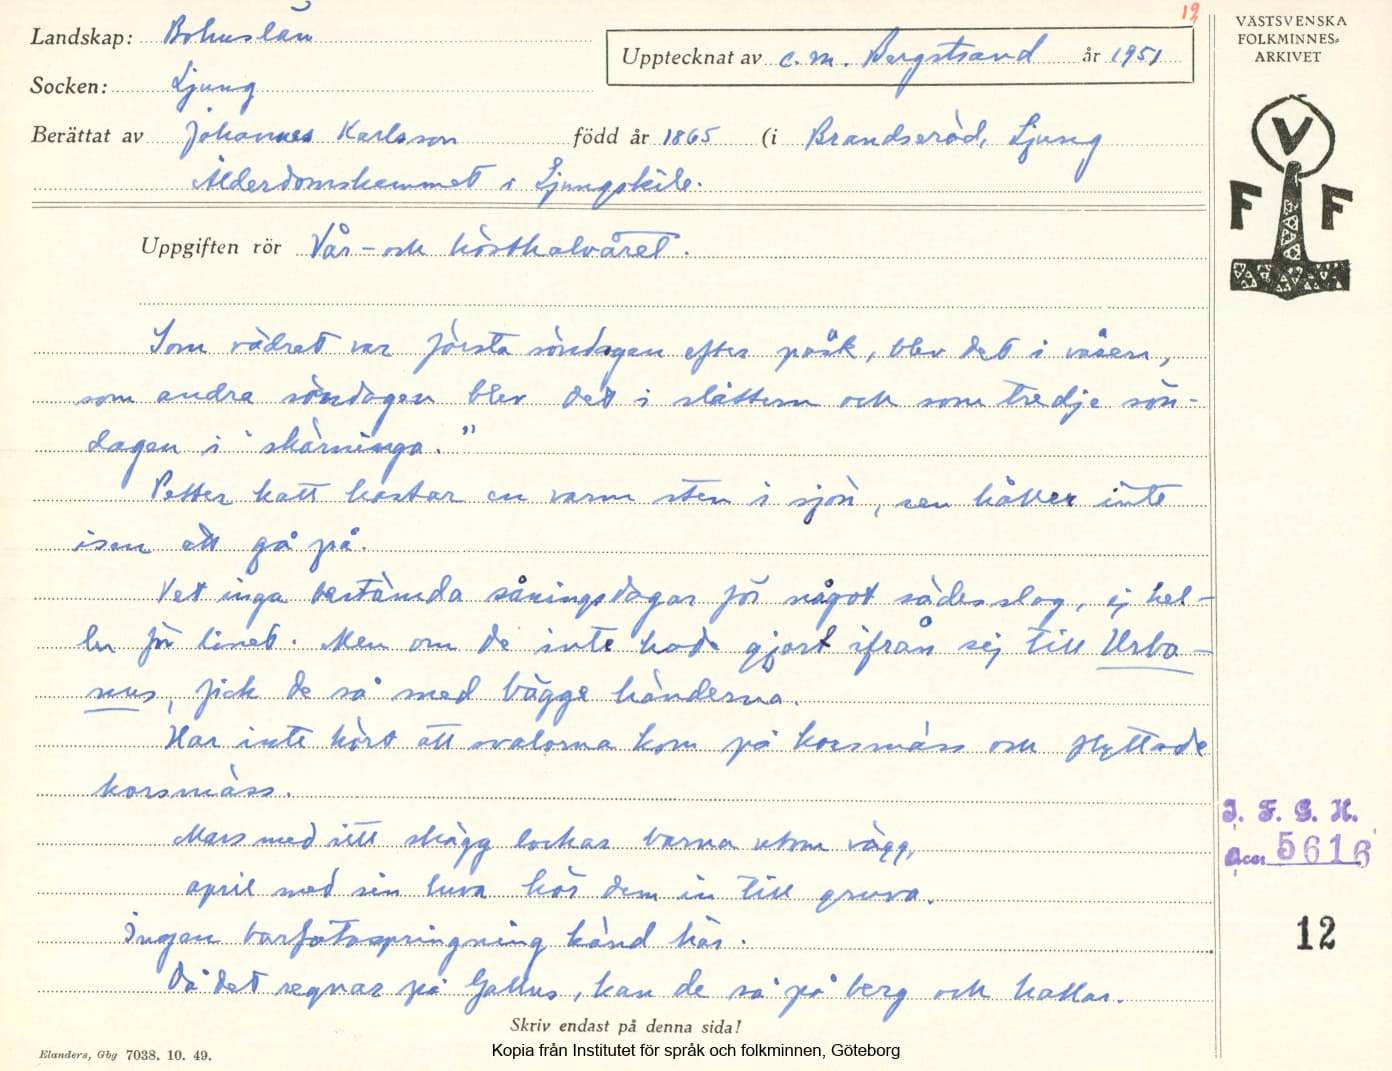 12
Landskap: Bohuslän
Upptecknat av C. M. Bergstrand år 1951
VÄSTSVENSKA
FOLKMINNES-
ARKIVET
Socken: Ljung
Berättat av Johannes Karlsson född år 1865 (i Brandseröd, Ljung
Ålderdomshemmet i Ljungskile.
V
F F
Uppgiften rör Vår- och hösthalvåret.
Som vädret var första söndagen efter påsk, blev det i våren,
som andra söndagen blev det i slåttern och som tredje sön-
dagen i "skörninga."
Petter katt kastar en varm sten i sjön, sen håller inte
isen att gå på.
Vet inga bestämda såningsdagar för något sädesslag, ej hel-
ler för linet. Men om de inte hade gjort ifrån sej till Urba-
nus, fick de så med bägge händerna.
Har inte hört att svalorna kom på korsmäss och flyttade
korsmäss.
Mars med sitt skägg lockar barna utom vägg,
april med sin luva kör dem in till gruva.
Ingen barfotaspringning känd här.
Då det regnar på Gallus, kan de så på berg och hallar.
I. F. G. H.
Acc. 5616
12
Skriv endast på denna sida!
Elanders, Gbg 7038. 10. 49.
Kopia från Institutet för språk och folkminnen, Göteborg